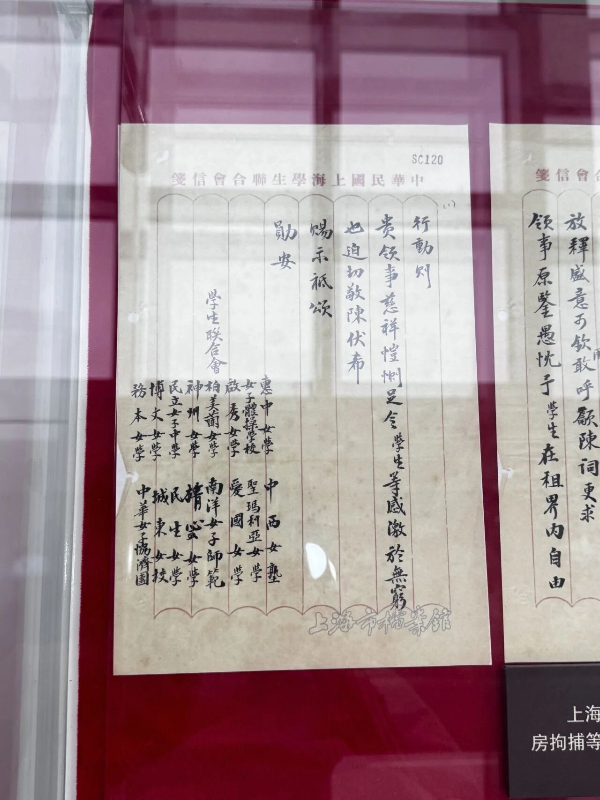 會信箋
放釋盛意可欽敢呼籲陳詞更求
領事原鑒愚忱予學生在租界內自由
SC120
中華民國上海學生聯合會信箋
行動則
貴領事慈祥愷惻足令學生等感激於無窮
也迫切敬陳伏希
賜示祗頌
勛安
學生联合會
惠中女學 中西女塾
女子體操學校 聖瑪利亞女學
啟秀女學 愛國女學
女學 南洋女子師範
神州女學 女學
民立女子中學 民生女學
博文女學 城東女校
務本女學 中華女子協濟團
上海市檔案館
上海
房拘捕等